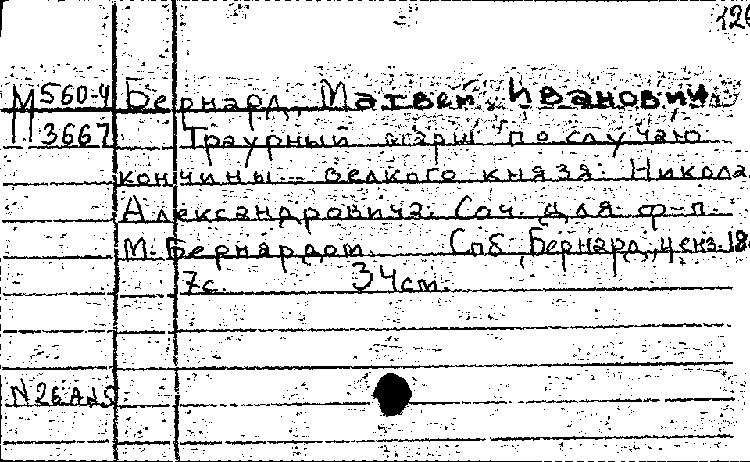 126
М 560-4 Бернард, Матвей Иванович.
П 3667 Траурный марш по случаю
кончины... велкого князя Никола
Александровича. Соч. для ф-п.
М. Бернардом. Спб, Бернард, ценз. 18
7с. 34см.